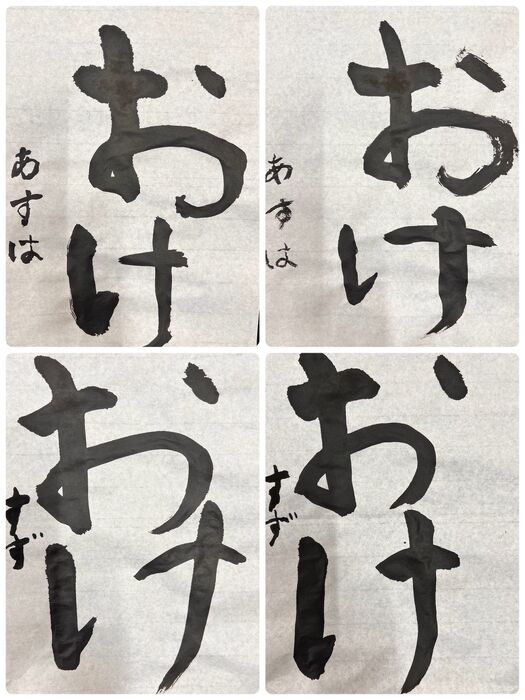 おけ
あすは
おけ
あすは
おけ
すず
おけ
すず